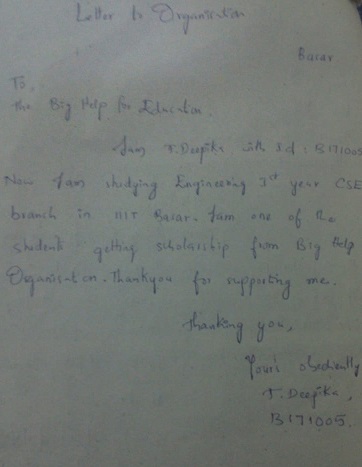 Letter to Organisation
Basar
To,
The Big Help for Education.
I am T. Deepika with Id : B171005
Now I am studying Engineering 1st year CSE
branch in IIIT Basar. I am one of the
students getting scholarship from Big Help
Organisation. Thankyou for supporting me.
Thanking you,
Your's obediently
T. Deepika,
B171005.